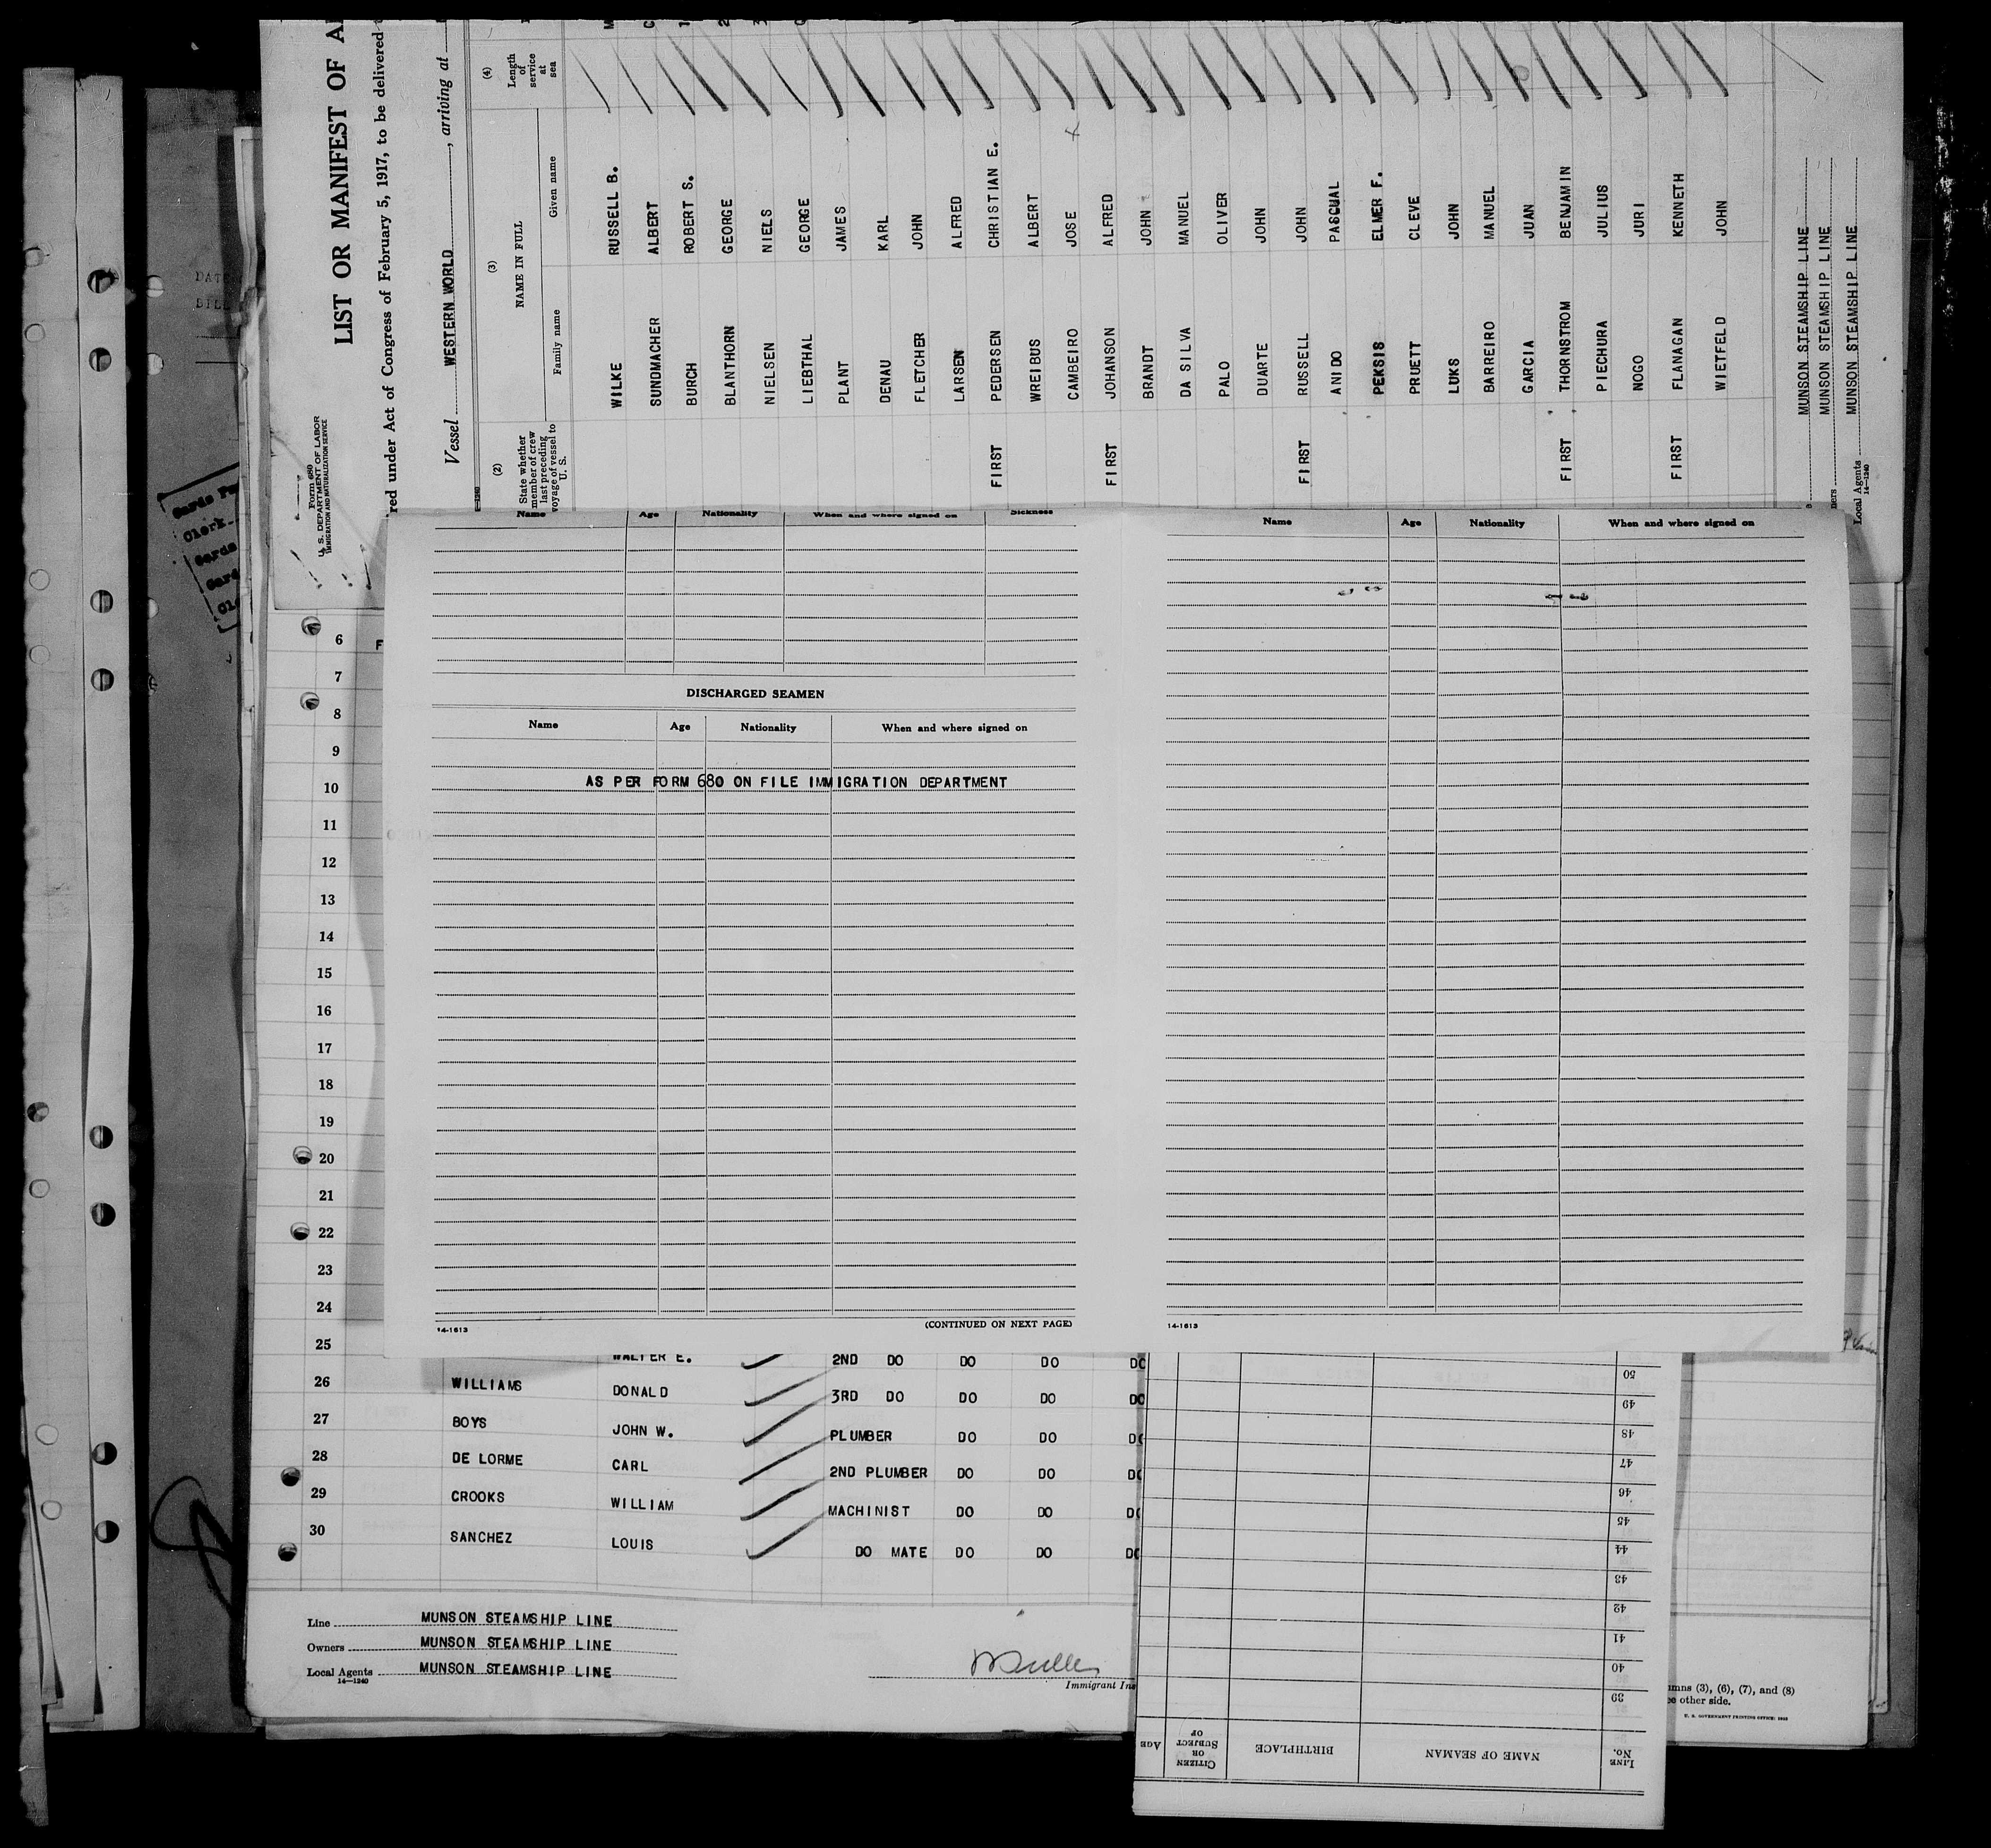 LIST OR MANIFEST OF
red under Act of Congress of February 5, 1917, to be delivered
Form 680
U. S. DEPARTMENT OF LABOR
IMMIGRATION AND NATURALIZATION SERVICE
Vessel WESTERN WORLD, arriving at
(2) (3) (4)
State whether member of crew last preceding voyage of vessel to U. S.
NAME IN FULL
Family name Given name
Length of service at sea
WILKE RUSSELL B.
SUNDMACHER ALBERT
BURCH ROBERT S.
BLANTHORN GEORGE
NIELSEN NIELS
LIEBTHAL GEORGE
PLANT JAMES
DENAU KARL
FLETCHER JOHN
LARSEN ALFRED
FIRST PEDERSEN CHRISTIAN E.
WREIBUS ALBERT
CAMBEIRO JOSE
FIRST JOHANSON ALFRED
BRANDT JOHN
DA SILVA MANUEL
PALO OLIVER
DUARTE JOHN
FIRST RUSSELL JOHN
ANIDO PASCUAL
PEKSIS ELMER F.
PRUETT CLEVE
LUKS JOHN
BARREIRO MANUEL
GARCIA JUAN
FIRST THORNSTROM BENJAMIN
PIECHURA JULIUS
NOGO JURI
FIRST FLANAGAN KENNETH
WIETFELD JOHN
MUNSON STEAMSHIP LINE
MUNSON STEAMSHIP LINE
Local Agents MUNSON STEAMSHIP LINE
14—1240
Name Age Nationality When and where signed on Sickness
DISCHARGED SEAMEN
Name Age Nationality When and where signed on
AS PER FORM 680 ON FILE IMMIGRATION DEPARTMENT
14-1613 (CONTINUED ON NEXT PAGE)
Name Age Nationality When and where signed on
14-1613
6
7
8
9
10
11
12
13
14
15
16
17
18
19
20
21
22
23
24
25 WALTER E. 2ND DO DO DO DO
26 WILLIAMS DONALD 3RD DO DO DO DO
27 BOYS JOHN W. PLUMBER DO DO
28 DE LORME CARL 2ND PLUMBER DO DO
29 CROOKS WILLIAM MACHINIST DO DO
30 SANCHEZ LOUIS DO MATE DO DO
Line MUNSON STEAMSHIP LINE
Owners MUNSON STEAMSHIP LINE
Local Agents MUNSON STEAMSHIP LINE
14—1240
Immigrant
(3), (6), (7), and (8)
other side.
U. S. GOVERNMENT PRINTING OFFICE
LINE No. NAME OF SEAMAN BIRTHPLACE CITIZEN OR SUBJECT OF AGE
39
40
41
42
43
44
45
46
47
48
49
50